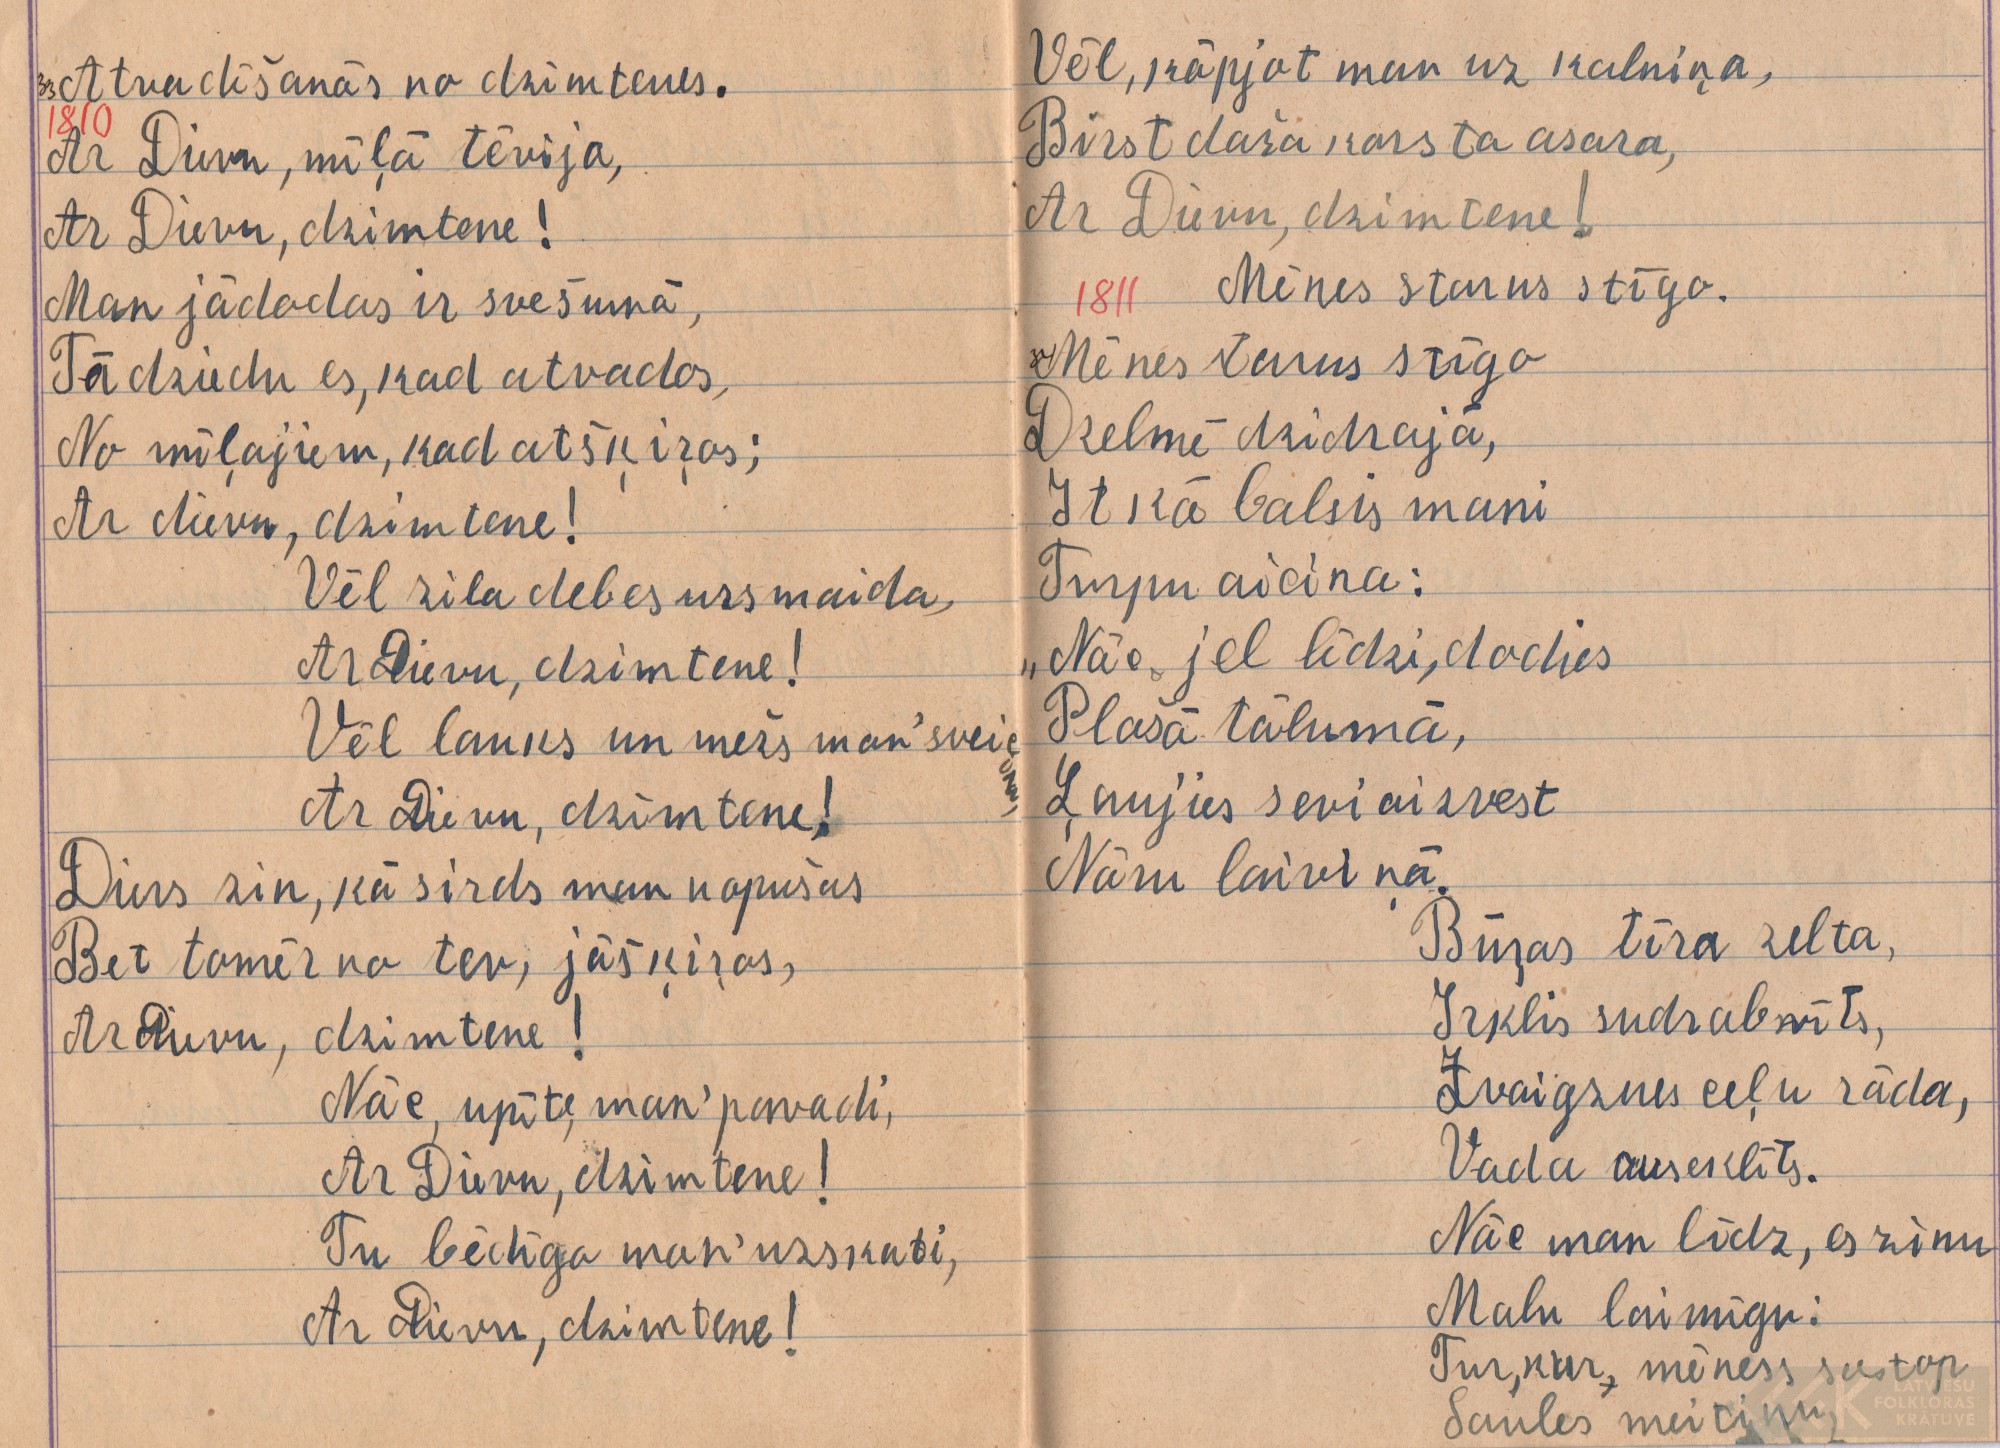 33 Atvadīšanās no dzimtenes.
1810
Ar Dievu, mīļā tēvija,
Ar Dievu, dzimtene!
Man jādodas ir svešumā,
Tā dziedu es, kad atvados,
No mīļajiem, kad atšķiŗos;
Ar dievu, dzimtene!
Vēl zila debes uzsmaida,
Ar Dievu, dzimtene!
Vēl lauks un mežs man' sveicina,
Ar Dievu, dzimtene!
Dievs zin, kā sirds man nopušas
Bet tomēr no tev, jāšķiŗas,
Ar Dievu, dzimtene!
Nāc, upīte, man' pavadi,
Ar Dievu, dzimtene!
Tu bēdīga man' uzskati,
Ar Dievu, dzimtene!
Vēl, kāpjot man uz kalniņa,
Birst daža karsta asara,
Ar Dievu, dzimtene!
1811 Mēnes starus stīgo.
34 Mēnes starus stīgo
Dzelmē dzidrajā,
It kā balsis mani
Turpu aicina:
„Nāc, jel līdzi, dodies
Plašā tālumā,
Ļaujies sevi aizvest
Nāru laiviņā.
Būŗas tīra zelta,
Irklis sudrabvīts,
Zvaigznes ceļu rāda,
Vada auseklīts.
Nāc man līdz, es zinu
Malu laimīgu:
Tur, kur, mēness sastop
Saules meitiņu,
LATVIEŠU
FOLKLORAS
KRĀTUVE